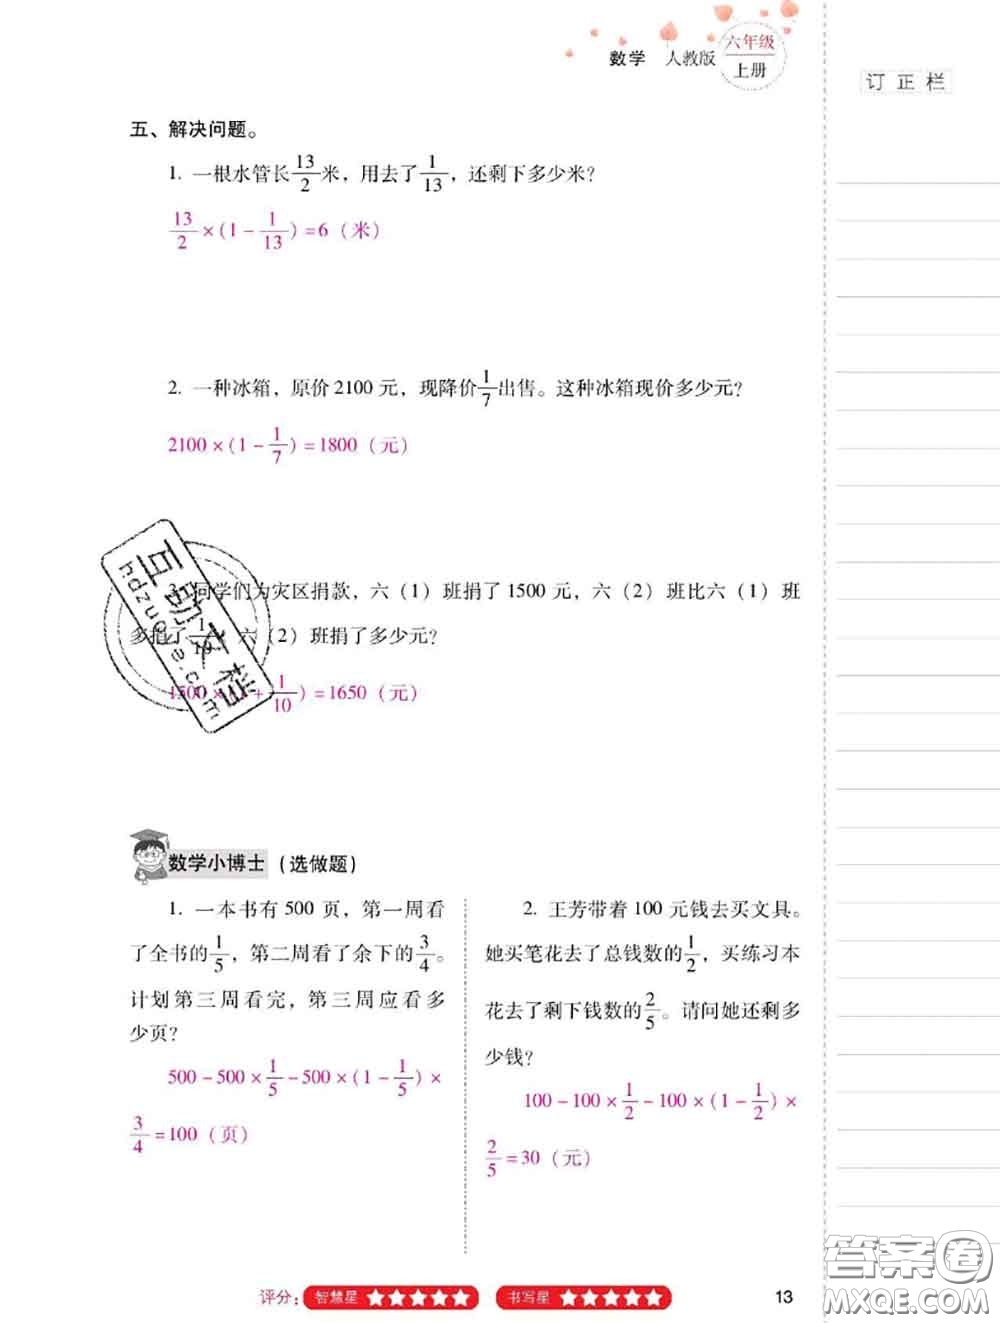 数学 人教版 六年级 上册
订正栏
五、解决问题。
1. 一根水管长13/2米，用去了1/13，还剩下多少米？
13/2×(1-1/13)=6（米）
2. 一种冰箱，原价2100元，现降价1/7出售。这种冰箱现价多少元？
2100×(1-1/7)=1800（元）
同学们为灾区捐款，六（1）班捐了1500元，六（2）班比六（1）班
多捐了 六（2）班捐了多少元？
1500× + 1/10)=1650（元）
数学小博士（选做题）
1. 一本书有500页，第一周看
了全书的1/5，第二周看了余下的3/4。
计划第三周看完，第三周应看多
少页？
500-500×1/5-500×(1-1/5)×
3/4=100（页）
2. 王芳带着100元钱去买文具。
她买笔花去了总钱数的1/2，买练习本
花去了剩下钱数的2/5。请问她还剩多
少钱？
100-100×1/2-100×(1-1/2)×
2/5=30（元）
互助文档
hdzuoye.com
评分： 智慧星 ★★★★★ 书写星 ★★★★★
13
答案圈
MXQE.COM